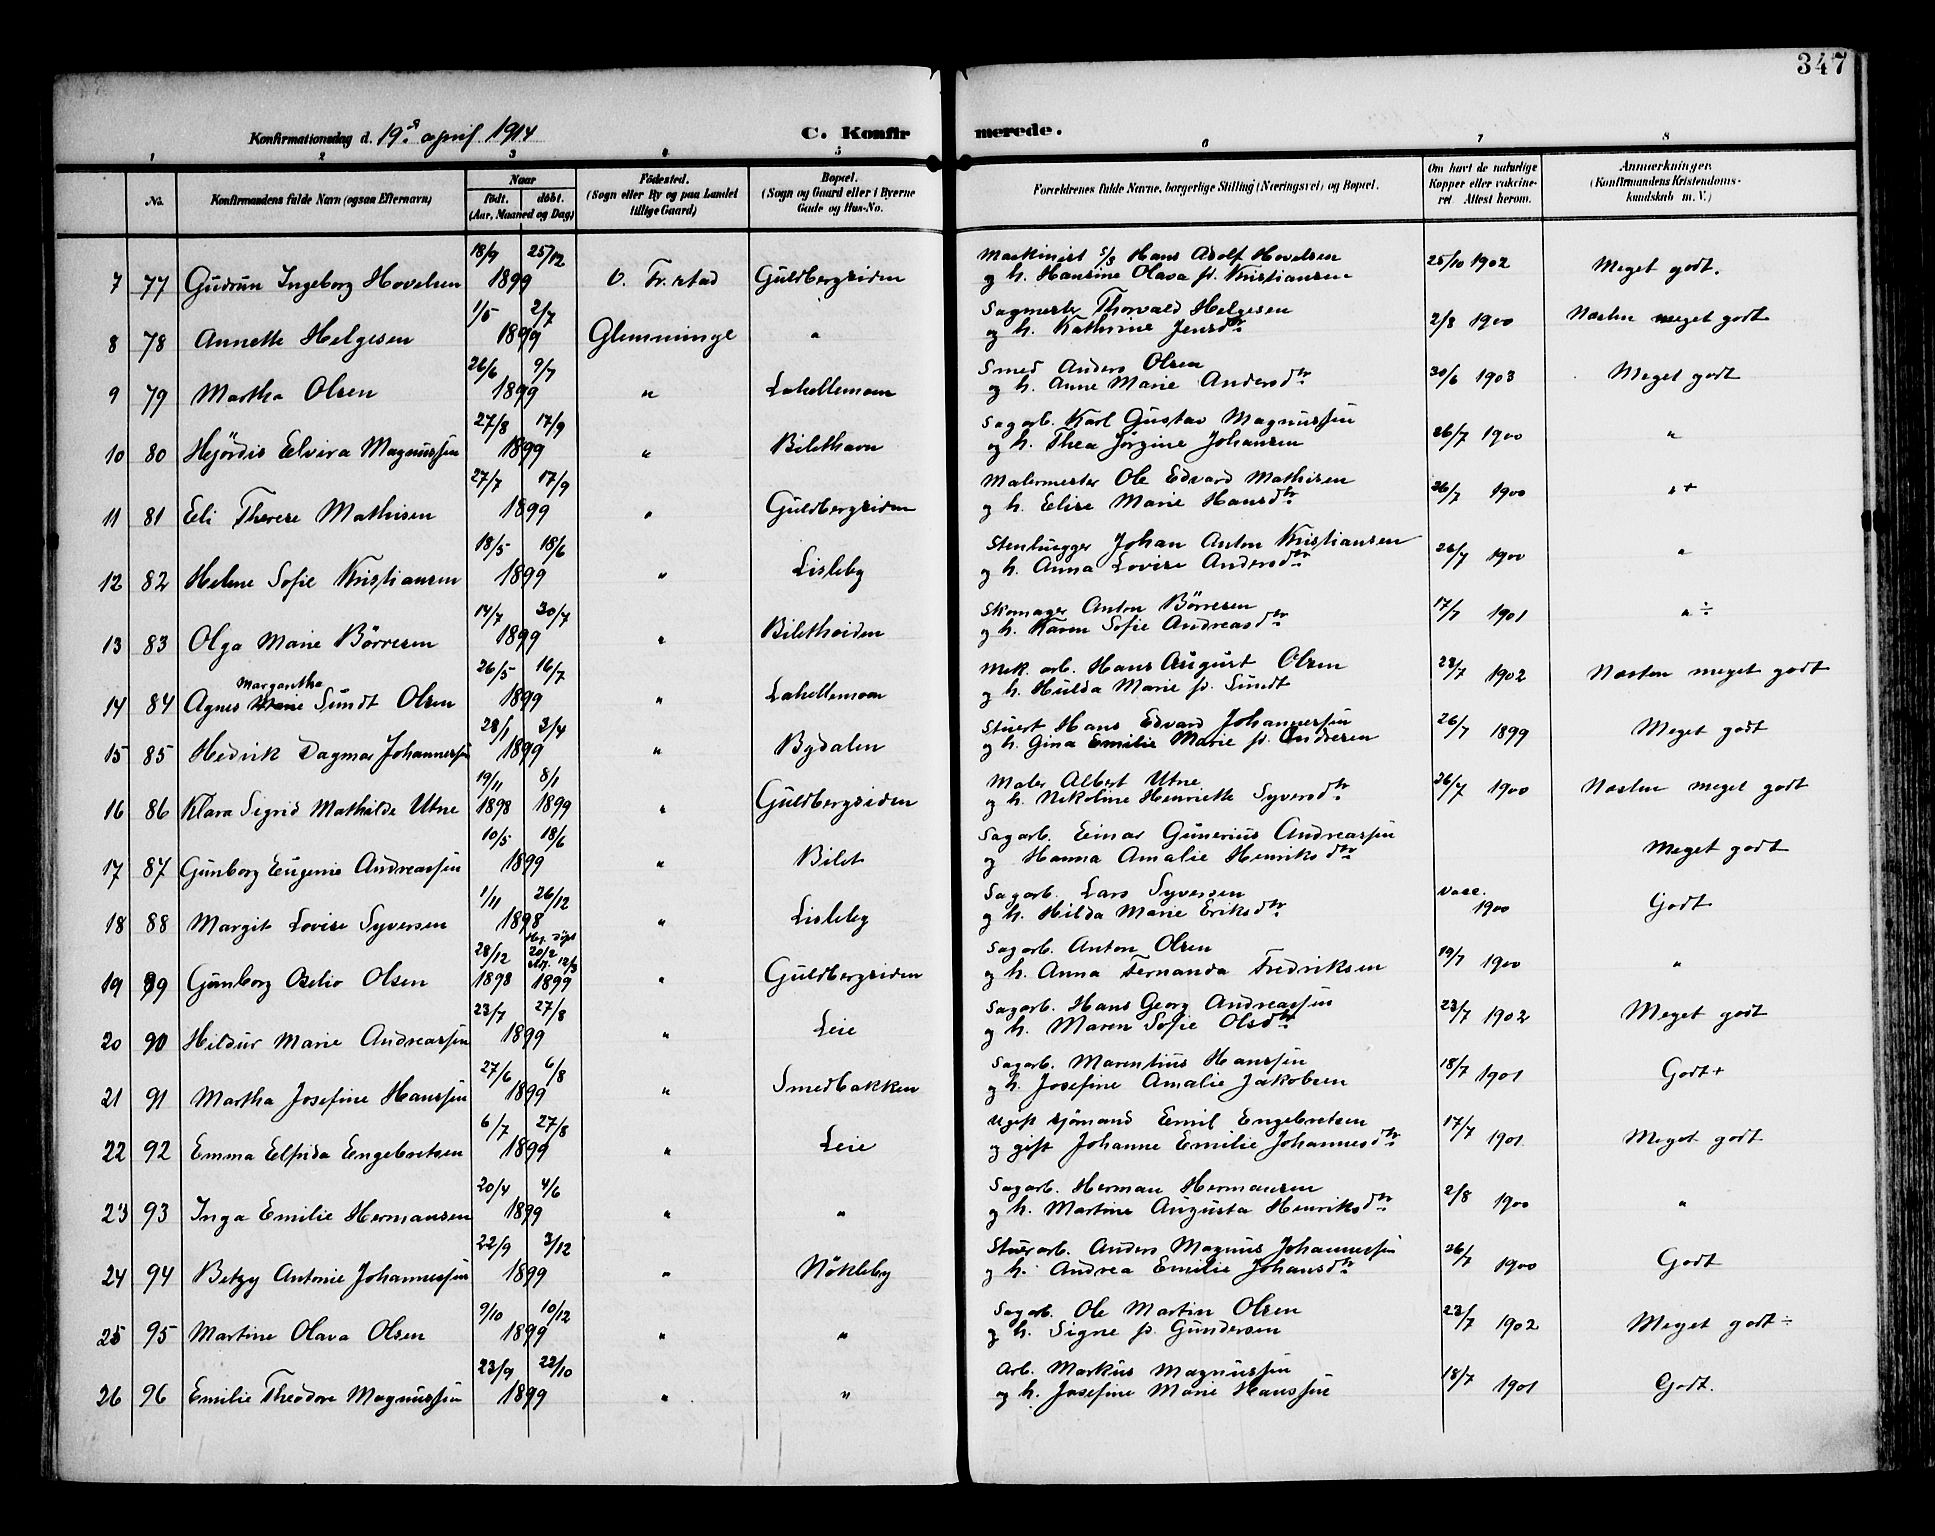 347
Konfirmationsdag d. 19. april 1914
C. Konfir merede.
1 2 3 4 5 6 7 8
No. Konfirmandens fulde Navn (ogsaa Efternavn) Naar födt. döbt. (Aar, Maaned og Dag) Födested. (Sogn eller By og paa Landet tillige Gaard) Bopæl. (Sogn og Gaard eller i Byerne Gade og Hus-No.) Forældrenes fulde Navne, borgerlige Stilling (Næringsvei) og Bopæl. Om havt de naturlige Kopper eller vakcineret. Attest herom. Anmærkninger. (Konfirmandens Kristendomskundskab m. V.)
7 77 Gudrun Ingeborg Hovelsen 18/9 25/12 1899 O. Fr.stad Guldbergsiden Maskinist S/S Hans Adolf Hovelsen
og h. Hansine Olava f. Kristiansen 25/10 1902 Meget godt.
8 78 Annette Helgesen 1/5 2/7 1899 Glemminge " Sagmester Thorvald Helgesen
og h. Kathrine Jensdtr 2/8 1900 Næsten meget godt
9 79 Martha Olsen 26/6 9/7 1899 " Lahellemoen Smed Anders Olsen
og h. Anne Marie Andersdtr 30/6 1903 Meget godt
10 80 Hjördis Elvira Magnussen 27/8 17/9 1899 " Bilethavn Sagarb. Karl Gustav Magnussen
og h. Thea Jörgine Johansen 26/7 1900 "
11 81 Eli Therese Mathisen 27/7 17/9 1899 " Guldbergsiden Malermester Ole Edvard Mathisen
og h. Elise Marie Hansdtr 26/7 1900 "+
12 82 Helene Sofie Kristiansen 18/5 18/6 1899 " Lisleby Stenhugger Johan Anton Kristiansen
og h. Anna Lovise Andersdtr 26/7 1900 "
13 83 Olga Marie Börresen 14/7 30/7 1899 " Bilethoiden Skomager Anton Börresen
og h. Karen Sofie Andreasdtr 17/7 1901 "÷
14 84 Agnes Margaretha Sundt Olsen 26/5 16/7 1899 " Lahellemoen Mek. arb. Hans August Olsen
og h. Hulda Marie f. Sundt 23/7 1902 Næsten meget godt
15 85 Hedvik Dagmar Johannessen 28/1 3/4 1899 " Bydalen Stuert Hans Edvard Johannessen
og h. Gina Emilie Marie f. Andresen 26/7 1899 Meget godt
16 86 Klara Sigrid Mathilde Utne 19/11 1898 8/1 1899 " Guldbergsiden Maler Albert Utne
og h. Nikoline Henriette Syversdtr 26/7 1900 Næsten meget godt
17 87 Gunborg Eugenie Andreassen 10/5 18/6 1899 " Bilet Sagarb. Einar Gunerius Andreassen
og Hanna Amalie Henriksdtr Meget godt
18 88 Margit Lovise Syversen 1/11 26/12 1898 " Lisleby Sagarb. Lars Syversen
og h. Hilda Marie Eriksdtr Vacc. 1900 Godt
19 89 Gunborg Oselio Olsen 28/12 1898 Hj. döpt 20/2 12/3 1899 " Guldbergsiden Sagarb. Anton Olsen
og h. Anna Fernanda Fredriksen 19/7 1900 "
20 90 Hildur Marie Andreassen 23/7 27/8 1899 " Leie Sagarb. Hans Georg Andreassen
og h. Maren Sofie Olsdtr 23/7 1902 Meget godt
21 91 Martha Josefine Hanssen 27/6 6/8 1899 " Smedbakken Sagarb. Marentius Hanssen
og h. Josefine Amalie Jakobsen 18/7 1901 Godt+
22 92 Emma Elfrida Engebretsen 6/7 27/8 1899 " Leie Ugift sjömand Emil Engebretsen
og gift Johanne Emilie Johannesdtr 17/7 1901 Meget godt
23 93 Inga Emilie Hermansen 20/4 4/6 1899 " " Sagarb. Herman Hermansen
og h. Martine Augusta Henriksdtr 2/8 1900 "
24 94 Betzy Antonie Johannessen 22/9 3/12 1899 " Nökleby Stuerarb. Anders Magnus Johannessen
og h. Andrea Emilie Johansdtr 26/7 1900 Godt
25 95 Martine Olava Olsen 9/10 10/12 1899 " " Sagarb. Ole Martin Olsen
og h. Signe f. Gundersen 23/7 1902 Meget godt÷
26 96 Emilie Theodore Magnussen 23/9 22/10 1899 " " Arb. Markus Magnussen
og h. Josefine Marie Hanssen 18/7 1901 Godt.